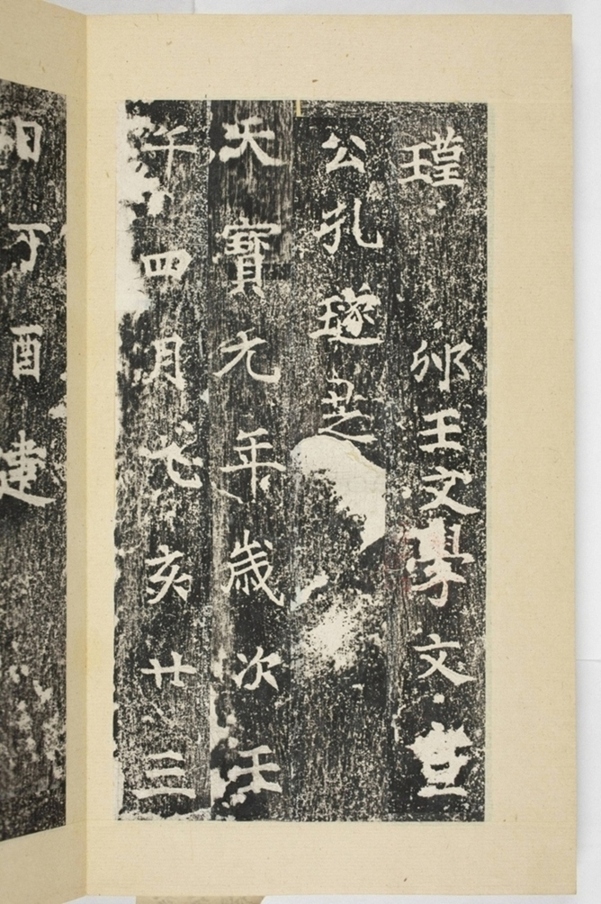 瑾 邠王文學文宣
公孔璲之
天寶元年歲次壬
午四月乙亥廿三
日丁酉建